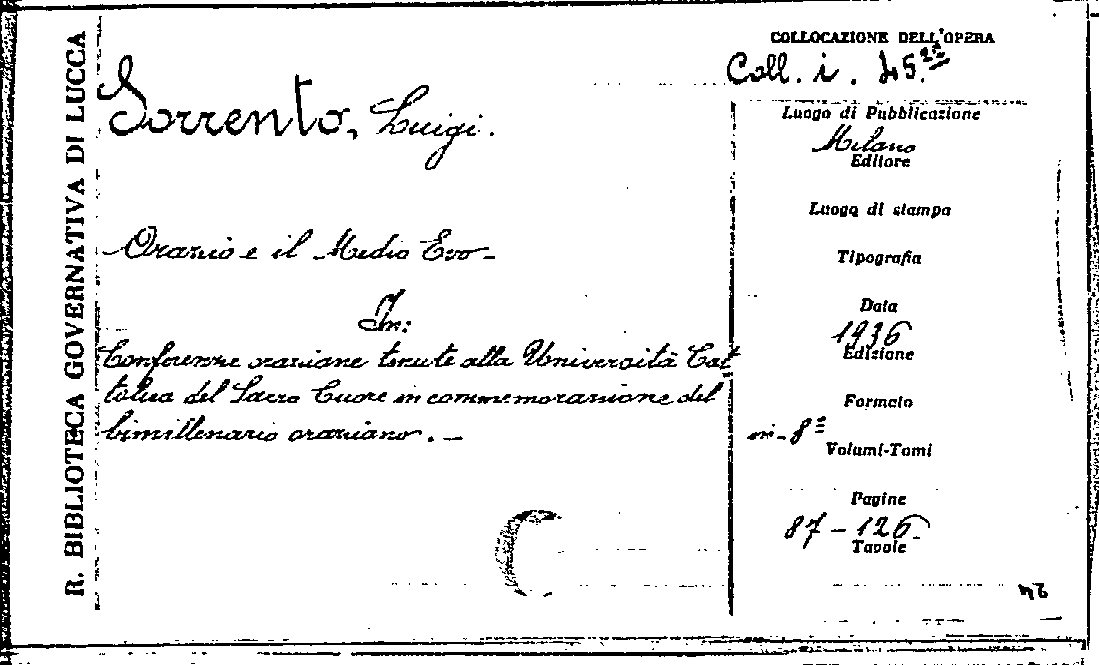 R. BIBLIOTECA GOVERNATIVA DI LUCCA
COLLOCAZIONE DELL'OPERA
Coll. i. 45.
Sorrento, Luigi.
Luogo di Pubblicazione
Milano
Editore
Luogo di stampa
Tipografia
Data
1936
Edizione
Formato
in-8º
Volumi-Tomi
Pagine
87-126
Tavole
Orazio e il Medio Evo-
In:
Conferenze oraziane tenute alla Università Cat
tolica del Sacro Cuore in commemorazione del
bimillenario oraziano. -